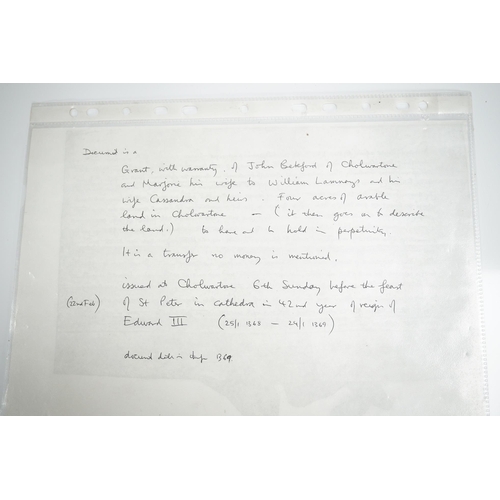 Document is a
Grant, with warranty, of John Bateford of Cholwartone
and Marjorie his wife to William Lammays and his
wife Cassandra and heirs. Four acres of arable
land in Cholwartone — (it then goes on to describe
the land.) to have and to hold in perpetuity.
It is a transfer no money is mentioned.
issued at Cholwartone 6th Sunday before the feast
(22nd Feb) of St Peter in cathedra in 42nd year of reign of
Edward III (25/1 1368 — 24/1 1369)
document date is 1369